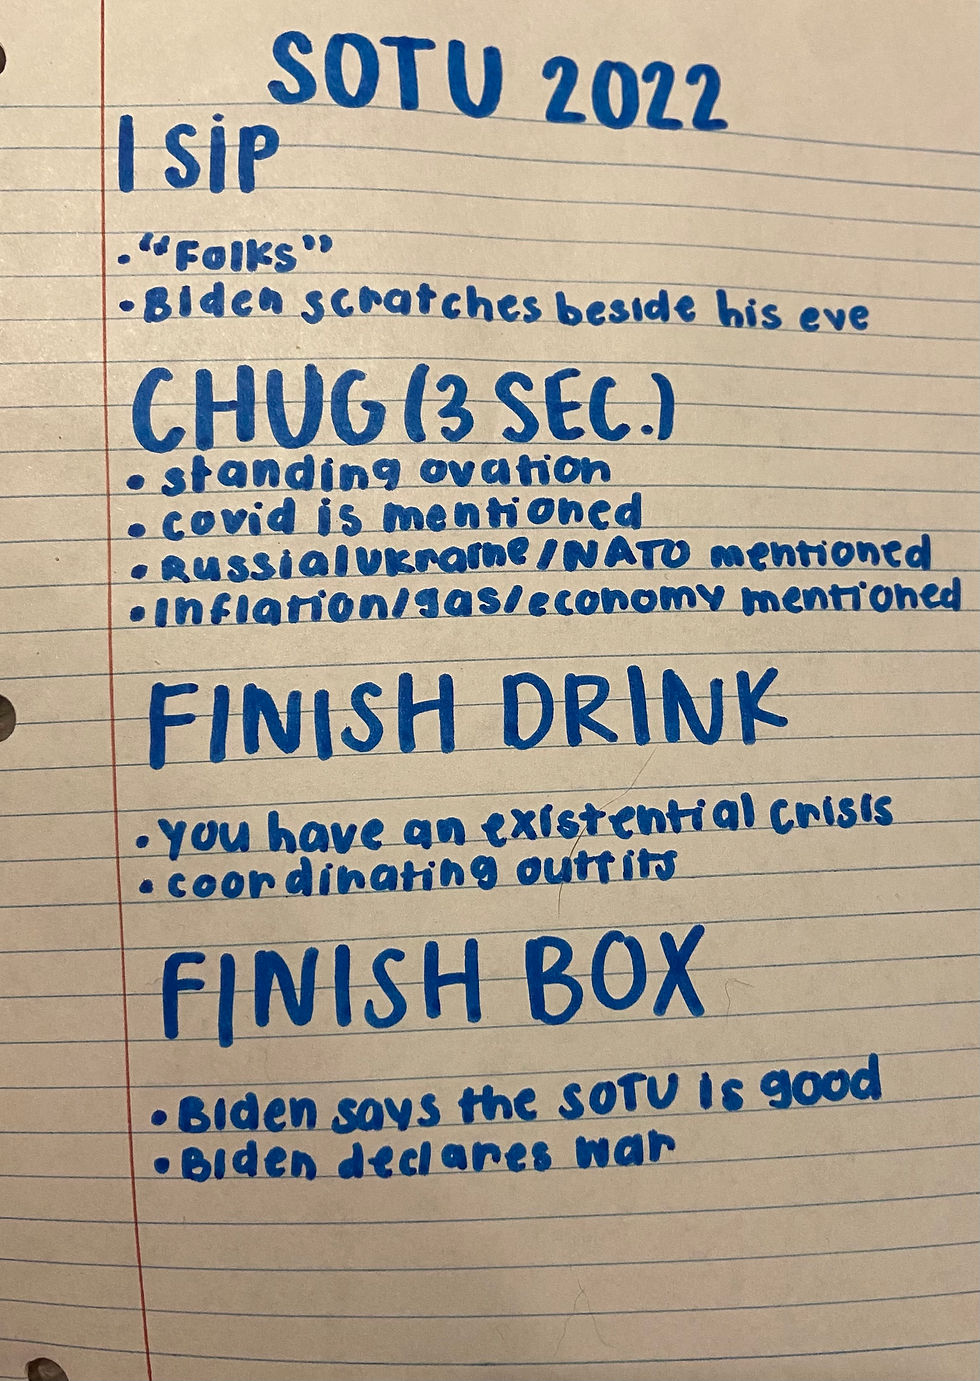 SOTU 2022
1 SiP
• "Folks"
• Biden scratches beside his eye
CHUG (3 SEC.)
• standing ovation
• covid is mentioned
• Russia/Ukraine/NATO mentioned
• Inflation/gas/economy mentioned
FINISH DRINK
• you have an existential crisis
• coordinating outfits
FINISH BOX
• Biden says the SOTU is good
• Biden declares war